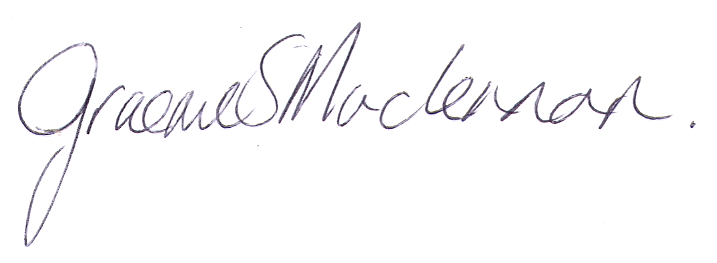 Graeme S Maclennan.